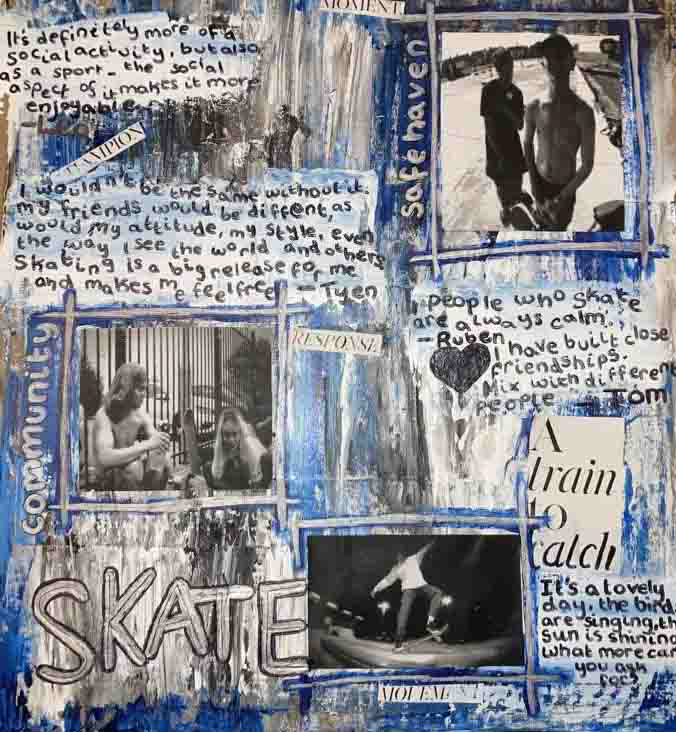 MOMENT
It's definitely more of a
social activity, but also
as a sport - the social
aspect of it makes it more
enjoyable.
CHAMPION
I wouldn't be the same without it.
my friends would be diffent, as
would my attitude, my style, even
the way I see the world and others
Skating is a big release for me
and makes me feel free - Tyen
safe haven
people who skate
are always calm.
- Ruben
I have built close
friendships.
Mix with different
people - Tom
community
RESPONSE
A
train
to
catch
SKATE
It's a lovely
day, the birds
are singing, th
sun is shining
what more can
you ask
for?
MOVEMENT